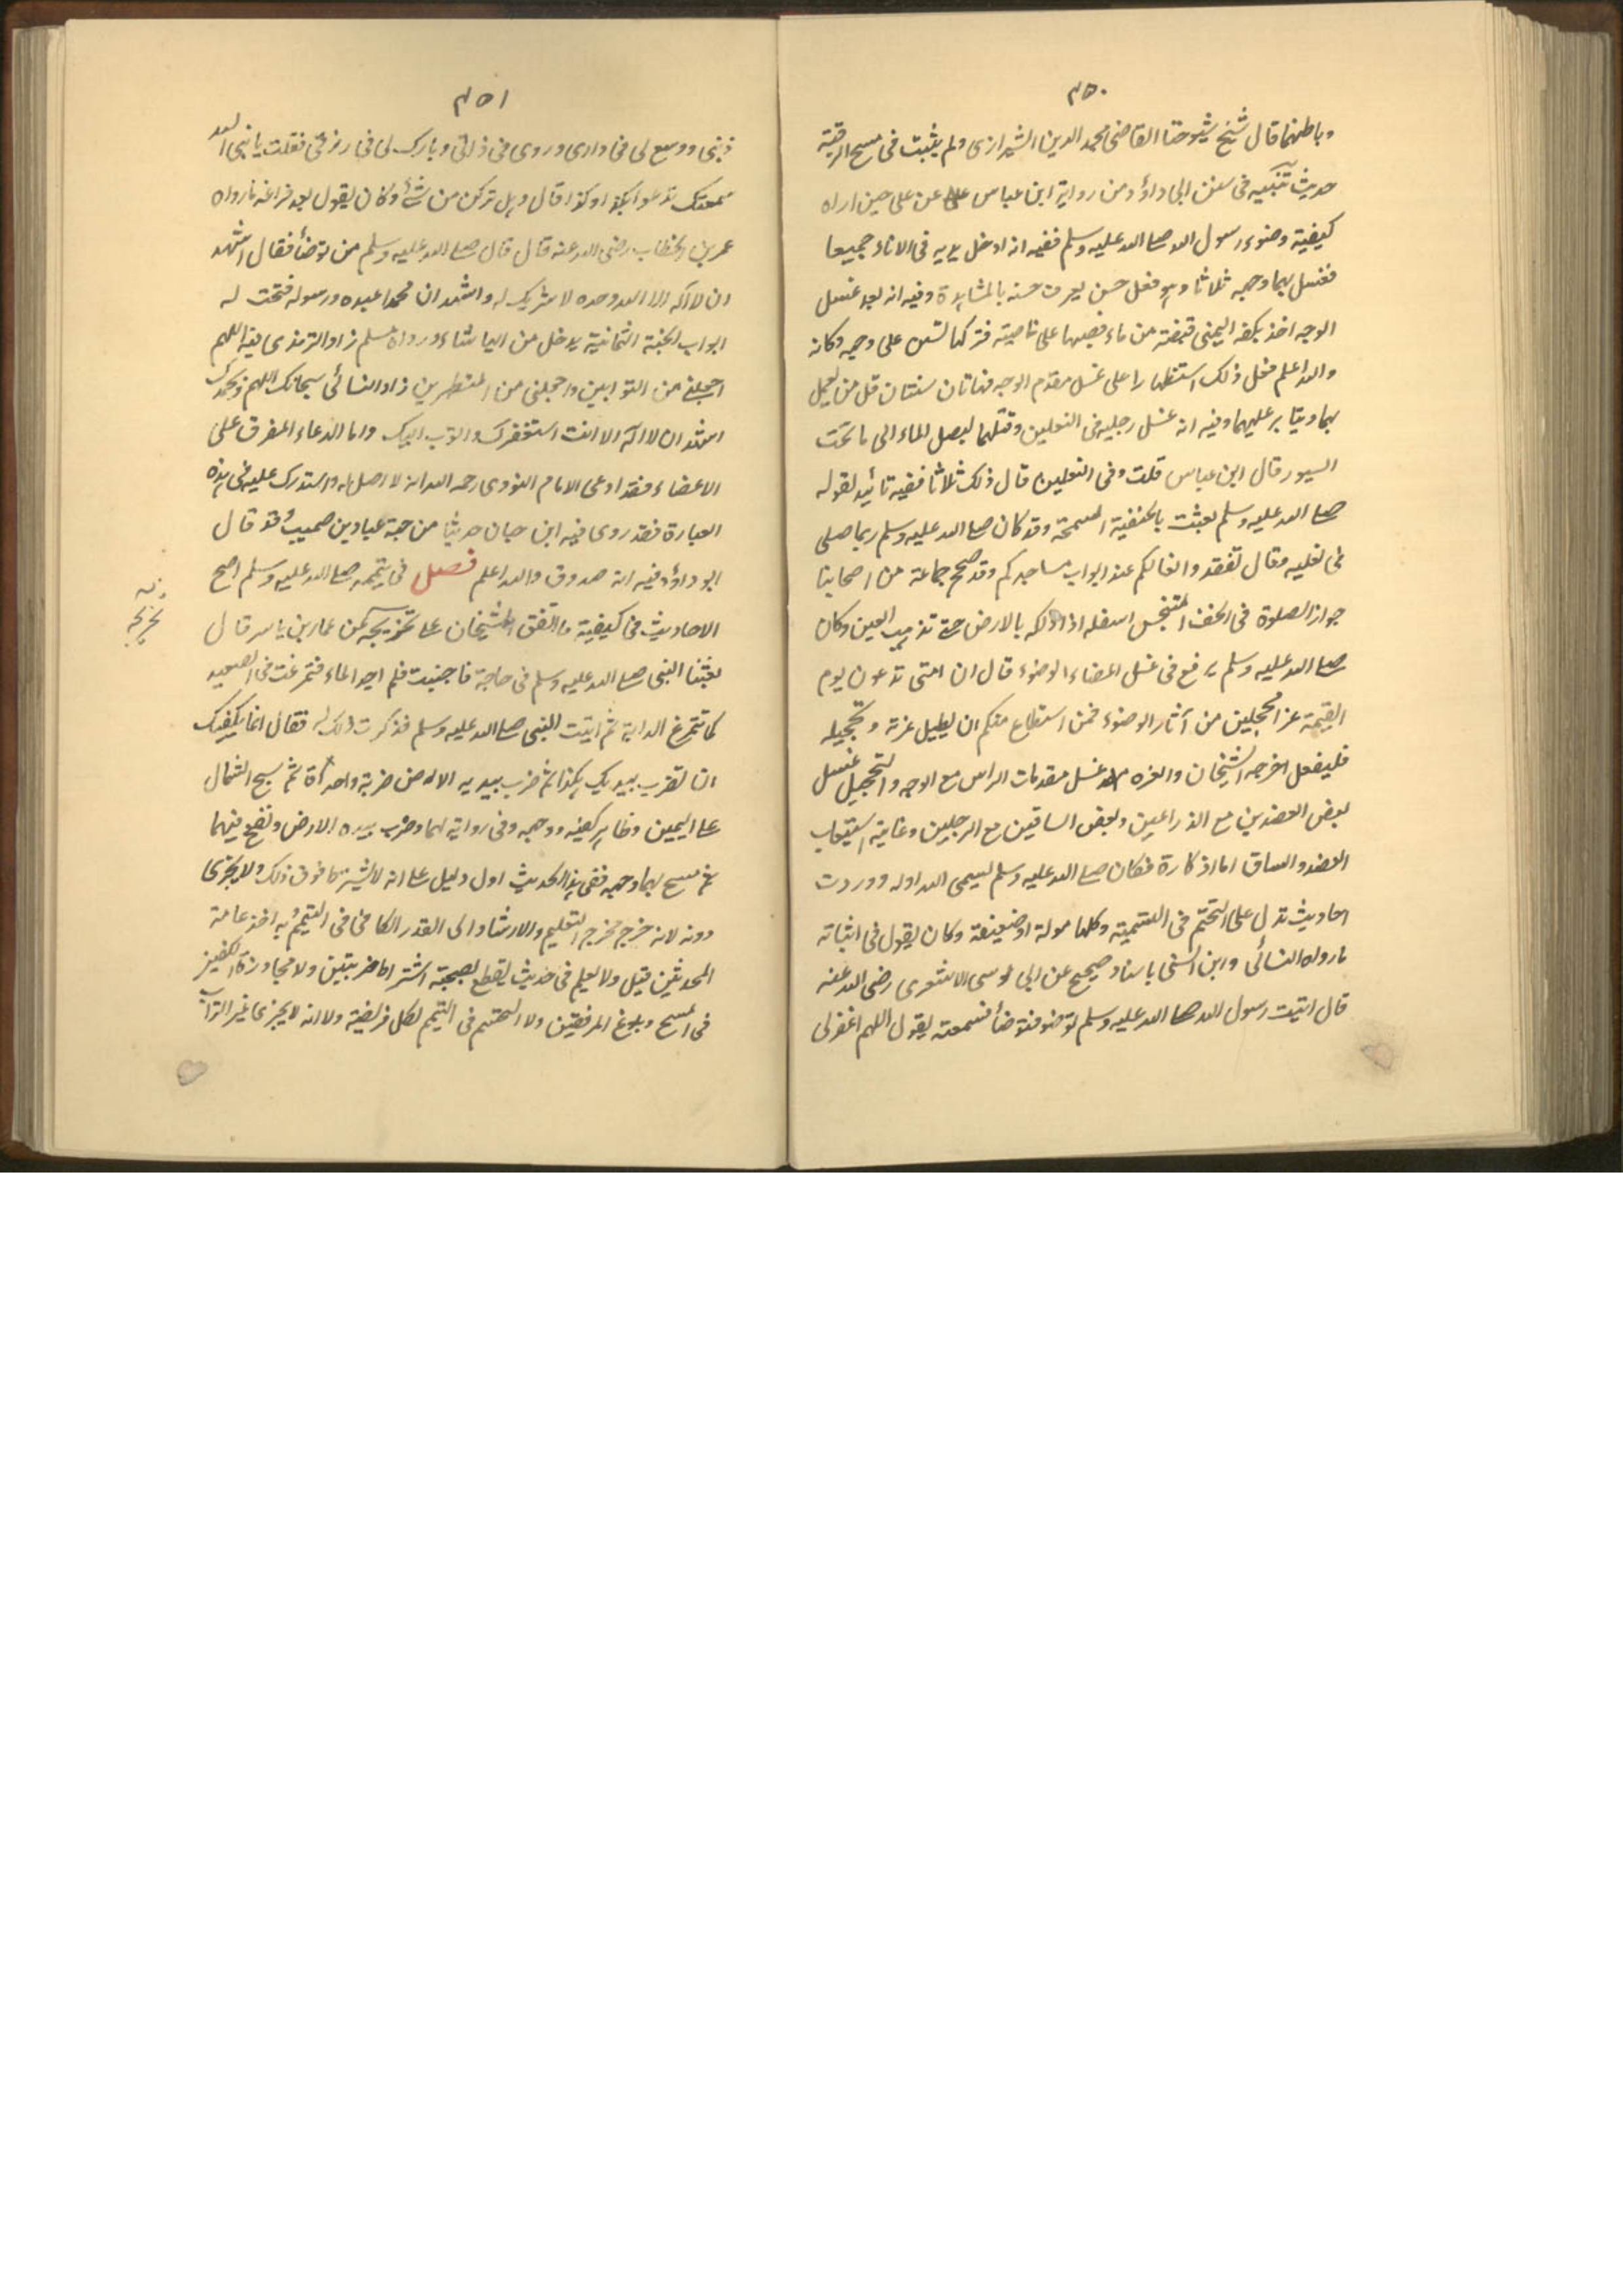 ٣٥٠
وباطنهما قال شيخ شيوخنا القاضى مجد الدين الشيرازى ولم يثبت فى مسح الرقبة
حديث تنبيه فى سنن ابى داؤد من رواية ابن عباس عن على حين اراه
كيفية وضوء رسول الله صلى الله عليه وسلم ففيه انه ادخل يديه فى الاناء جميعا
فغسل بهما وجهه ثلاثا وهو فعل حسن يعرف حسنه بالمشاهدة وفيه انه بعد غسل
الوجه اخذ بكفه اليمنى قبضة من ماء فصبها على ناصيته فتركها تستن على وجهه وكانه
والله اعلم فعل ذلك استظهارا على غسل مقدم الوجه فهاتان سنتان قل من يعمل
بهما ويثابر عليهما وفيه انه غسل رجليه فى النعلين وفتلهما ليصل الماء الى ما تحت
السيور قال ابن عباس قلت وفى النعلين قال ذلك ثلاثا ففيه تائيد لقوله
صلى الله عليه وسلم بعثت بالحنفية السمحة وقد كان صلى الله عليه وسلم ربما صلى
فى نعليه وقال تفقدوا نعالكم عند ابواب مساجدكم وقد صحح جماعة من اصحابنا
جواز الصلوة فى الخف المتنجس اسفله اذا دلكه بالارض حتى تذهب العين وكان
صلى الله عليه وسلم يرفع فى غسل اعضاء الوضوء قال ان امتى تدعون يوم
القيمة غرا محجلين من آثار الوضوء فمن استطاع منكم ان يطيل غرته وتحجيله
فليفعل اخرجه الشيخان والغره غسل مقدمات الراس مع الوجه والتحجيل غسل
بعض العضدين مع الذراعين وبعض الساقين مع الرجلين وغايته استيعاب
العضد والساق اما اذكاره فكان صلى الله عليه وسلم يسمى الله اوله ووردت
احاديث تدل على التحتم فى التسمية وكلها ضعيفة وكان يقول فى اثنائه
ما رواه النسائى وابن السنى باسناد صحيح عن ابى موسى الاشعرى رضى الله عنه
قال اتيت رسول الله صلى الله عليه وسلم بوضوء فتوضأ فسمعته يقول اللهم اغفر لى
٣٥١
ذنبى ووسع لى فى دارى وبارك لى فى رزقى فقلت يا نبى الله
سمعتك تدعو بكذا وكذا قال وهل تركن من شئ وكان يقول بعد فراغه ما رواه
عمر بن الخطاب رضى الله عنه قال قال صلى الله عليه وسلم من توضأ فقال اشهد
ان لا اله الا الله وحده لا شريك له واشهد ان محمدا عبده ورسوله فتحت له
ابواب الجنة الثمانية يدخل من ايها شاء ورواه مسلم زاد الترمذى فيه اللهم
اجعلنى من التوابين واجعلنى من المتطهرين زاد النسائى سبحانك اللهم وبحمدك
اشهد ان لا اله الا انت استغفرك واتوب اليك واما الدعاء المفرق على
الاعضاء فقد ادعى الامام النووى رحمه الله انه لا اصل له واستدرك عليه فى هذه
العبارة فقد روى فيه ابن حبان حديثا من جهة عباد بن صهيب وقد قال
ابو داؤد فيه انه صدوق والله اعلم فصل فى تيممه صلى الله عليه وسلم اصح
الاحاديث فى كيفية ما اتفق الشيخان على تخريجه عن عمار بن ياسر قال
بعثنا النبى صلى الله عليه وسلم فى حاجة فاجنبت فلم اجد الماء فتمرغت فى الصعيد
كما تتمرغ الدابة ثم اتيت النبى صلى الله عليه وسلم فذكرت ذلك له فقال انما يكفيك
ان تضرب بيديك هكذا ثم ضرب بيديه الارض ضربة واحدة ثم مسح الشمال
على اليمين وظاهر كفيه ووجهه وفى رواية لهما وضرب بيده الارض ونفخ فيهما
ثم مسح بهما وجهه ففى هذا الحديث اول دليل على انه لا يشترط فوق ذلك ولا يجزى
دونه لانه خرج مخرج التعليم والارشاد الى القدر الكافى فى التيمم وبه اخذ عامة
المحدثين قيل ولا يعلم فى حديث يقطع بصحته اشتراط ضربتين ولا مجاوزة الكفين
فى المسح وبلوغ المرفقين ولا التيمم لكل فريضة ولا انه لا يجزى غير التراب